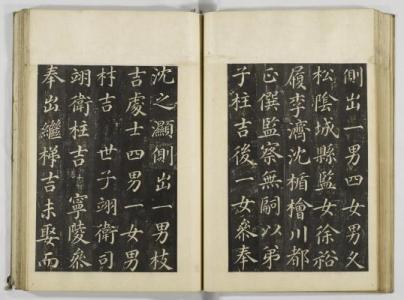 側出一男四女男久
松陰城縣監女徐裕
履李濟沈楯檜川都
正僎監察無嗣以弟
子柱吉後一女參奉
沈之灝側出一男枝
吉處士四男一女男
村吉 世子翊衛司
翊衛柱吉 寧陵參
奉出繼梯吉未娶而